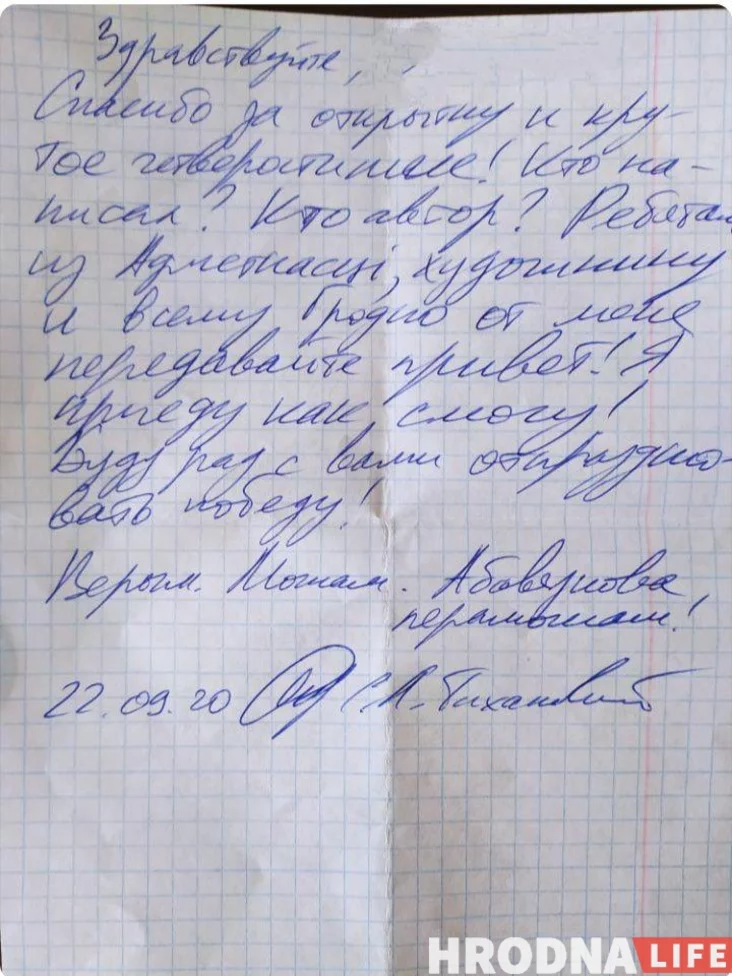 Здравствуйте,
Спасибо за открытку и кру-
тое четверостишие! Кто на-
писал? Кто автор? Ребятам
из Адметнасці, художнику
и всему Гродно от меня
передавайте привет! Я
приеду как смогу!
Буду рад с вами отпраздно-
вать победу!
Верым. Можам. Абавязкова
пераможам!
22.09.20 С.Л. Тихановский
HRODNA LIFE